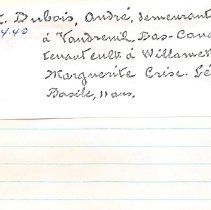 t. Dubois, André, demeurant
4.40 à Vaudreuil, Bas-Cana
tenant cult. à Willamet
Marguerite Crise. Té
Basile, 11 ans.